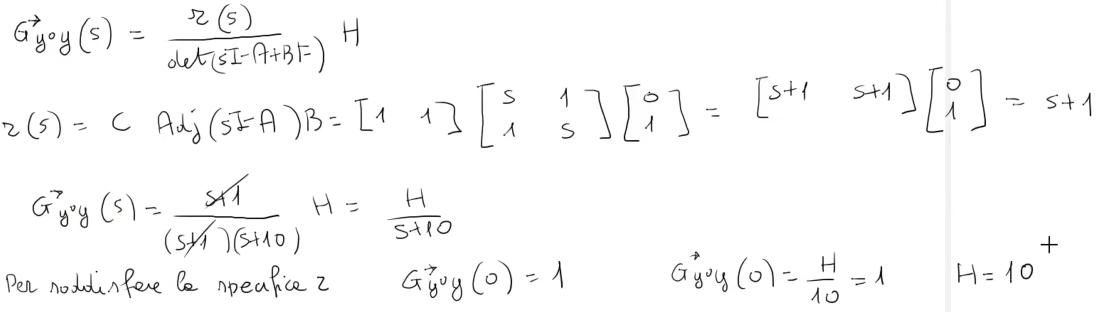 G⃗y°y(s) = r(s) / det(sI-A+BF) H
r(s) = C Adj(sI-A)B = [1 1] [s 1; 1 s] [0; 1] = [s+1 s+1] [0; 1] = s+1
G⃗y°y(s) = s+1 / (s+1)(s+10) H = H / s+10
Per soddisfare la specifica 2 G⃗y°y(0) = 1 G⃗y°y(0) = H / 10 = 1 H = 10 +